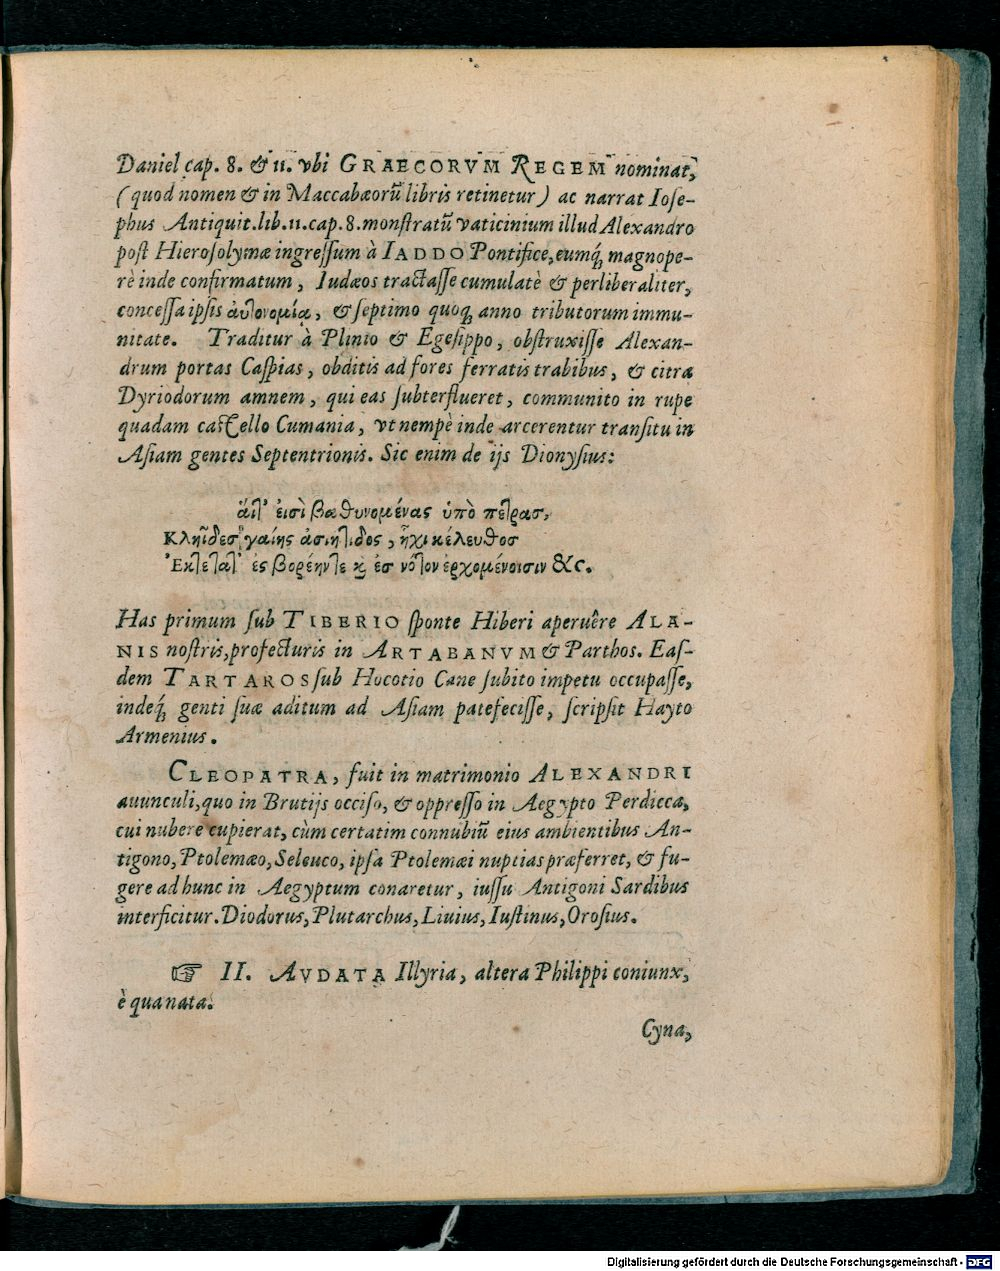 Daniel cap. 8. & 11. vbi GRAECORVM REGEM nominat,
(quod nomen & in Maccabæorũ libris retinetur) ac narrat Iose-
phus Antiquit. lib. 11. cap. 8. monstratũ vaticinium illud Alexandro
post Hierosolymæ ingressum à IADDO Pontifice, eumq́; magnope-
rè inde confirmatum, Iudæos tractasse cumulatè & perliberaliter,
concessa ipsis αὐτονομίᾳ, & septimo quoq; anno tributorum immu-
nitate. Traditur à Plinio & Egesippo, obstruxisse Alexan-
drum portas Caspias, obditis ad fores ferratis trabibus, & citra
Dyriodorum amnem, qui eas subterflueret, communito in rupe
quadam castello Cumania, vt nempè inde arcerentur transitu in
Asiam gentes Septentrionis. Sic enim de ijs Dionysius:
ἅιτ' εἰσὶ βαθυνομένας ὑπὸ πέτρας,
Κληῗδες γαίης ἀσιήτιδος, ἧχι κέλευθος
Ἐκτέτατ' ἐς βορέηντε κὶ ἐς νότον ἐρχομένοισιν &c.
Has primum sub TIBERIO sponte Hiberi aperuêre ALA-
NIS nostris, profecturis in ARTABANVM & Parthos. Eas-
dem TARTAROS sub Hocotio Cane subito impetu occupasse,
indeq́; genti suæ aditum ad Asiam patefecisse, scripsit Hayto
Armenius.
CLEOPATRA, fuit in matrimonio ALEXANDRI
auunculi, quo in Brutijs occiso, & oppresso in Aegypto Perdicca,
cui nubere cupierat, cùm certatim connubiũ eius ambientibus An-
tigono, Ptolemæo, Seleuco, ipsa Ptolemæi nuptias præferret, & fu-
gere ad hunc in Aegyptum conaretur, iussu Antigoni Sardibus
interficitur. Diodorus, Plutarchus, Liuius, Iustinus, Orosius.
☞ II. AVDATA Illyria, altera Philippi coniunx,
è qua nata.
Cyna,
Digitalisierung gefördert durch die Deutsche Forschungsgemeinschaft - DFG